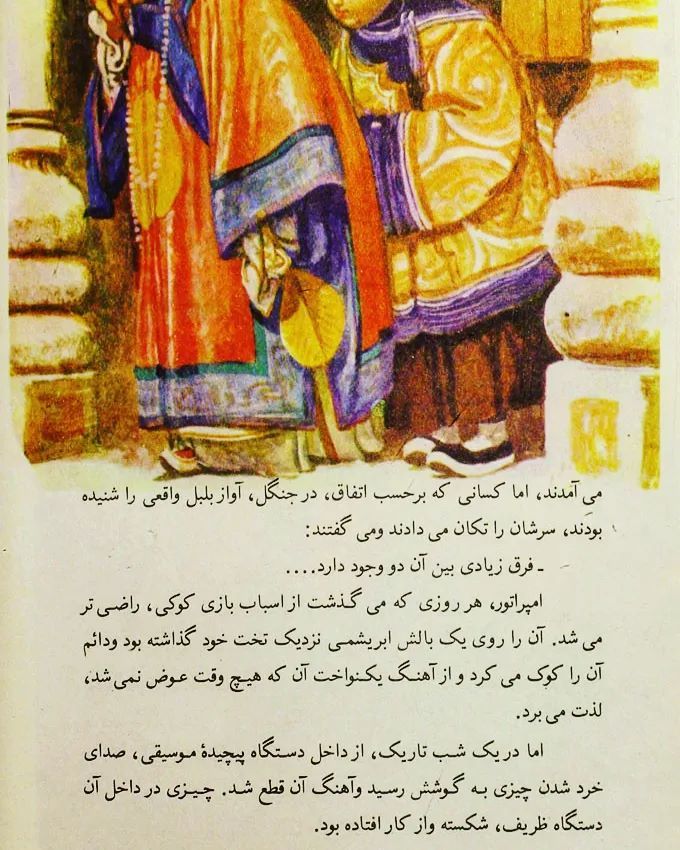 می آمدند، اما کسانی که برحسب اتفاق، در جنگل، آواز بلبل واقعی را شنیده
بودند، سرشان را تکان می دادند ومی گفتند:
ـ فرق زیادی بین آن دو وجود دارد....
امپراتور، هر روزی که می گذشت از اسباب بازی کوکی، راضی تر
می شد. آن را روی یک بالش ابریشمی نزدیک تخت خود گذاشته بود ودائم
آن را کوک می کرد و از آهنگ یکنواخت آن که هیچ وقت عوض نمی شد،
لذت می برد.
اما در یک شب تاریک، از داخل دستگاه پیچیدهٔ موسیقی، صدای
خرد شدن چیزی به گوشش رسید وآهنگ آن قطع شد. چیزی در داخل آن
دستگاه ظریف، شکسته واز کار افتاده بود.